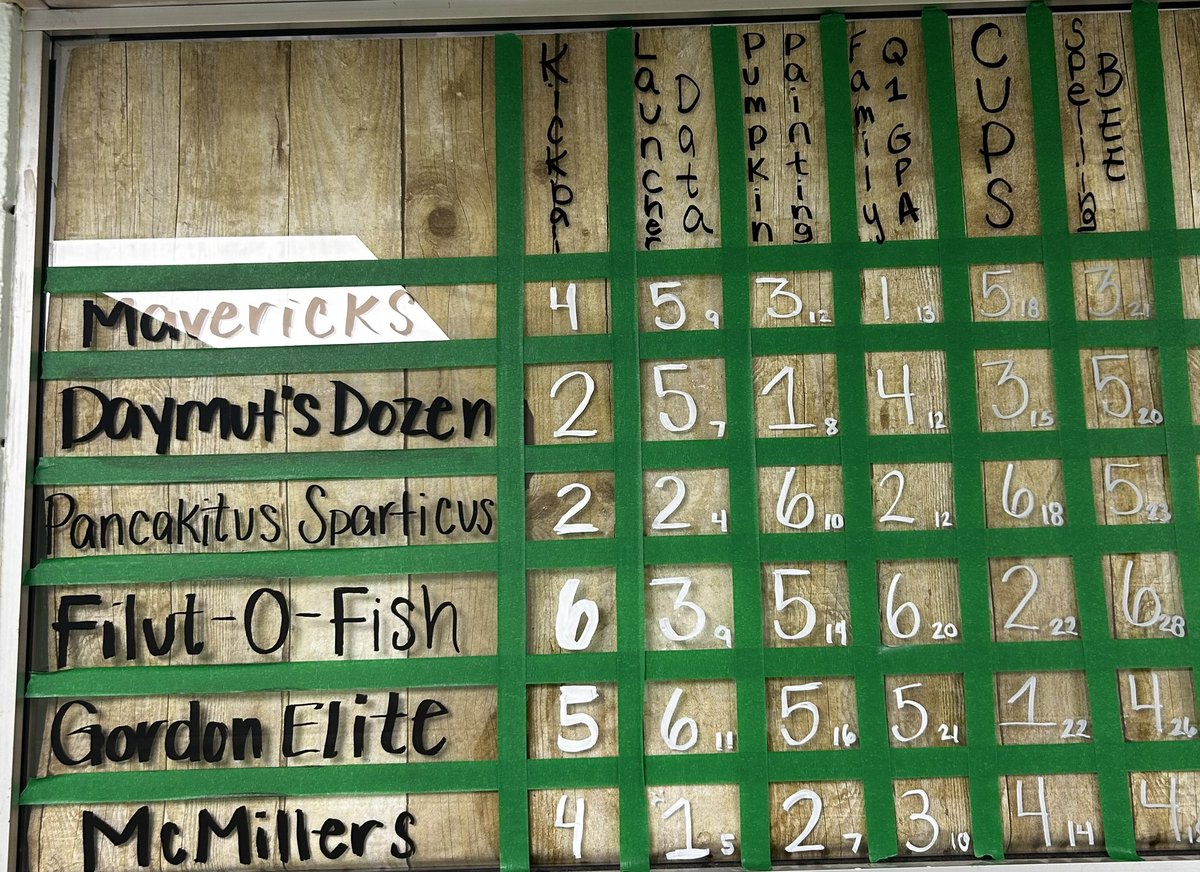 Kickball Launcher Data Pumpkin Painting Family Q1 GPA CUPS Spelling BEE
Mavericks 4 5 9 3 12 1 13 5 18 3 21
Daymut's Dozen 2 5 7 1 8 4 12 3 15 5 20
Pancakitus Sparticus 2 2 4 6 10 2 12 6 18 5 23
Filut-O-Fish 6 3 9 5 14 6 20 2 22 6 28
Gordon Elite 5 6 11 5 16 5 21 1 22 4 26
McMillers 4 1 5 2 7 3 10 4 14 4